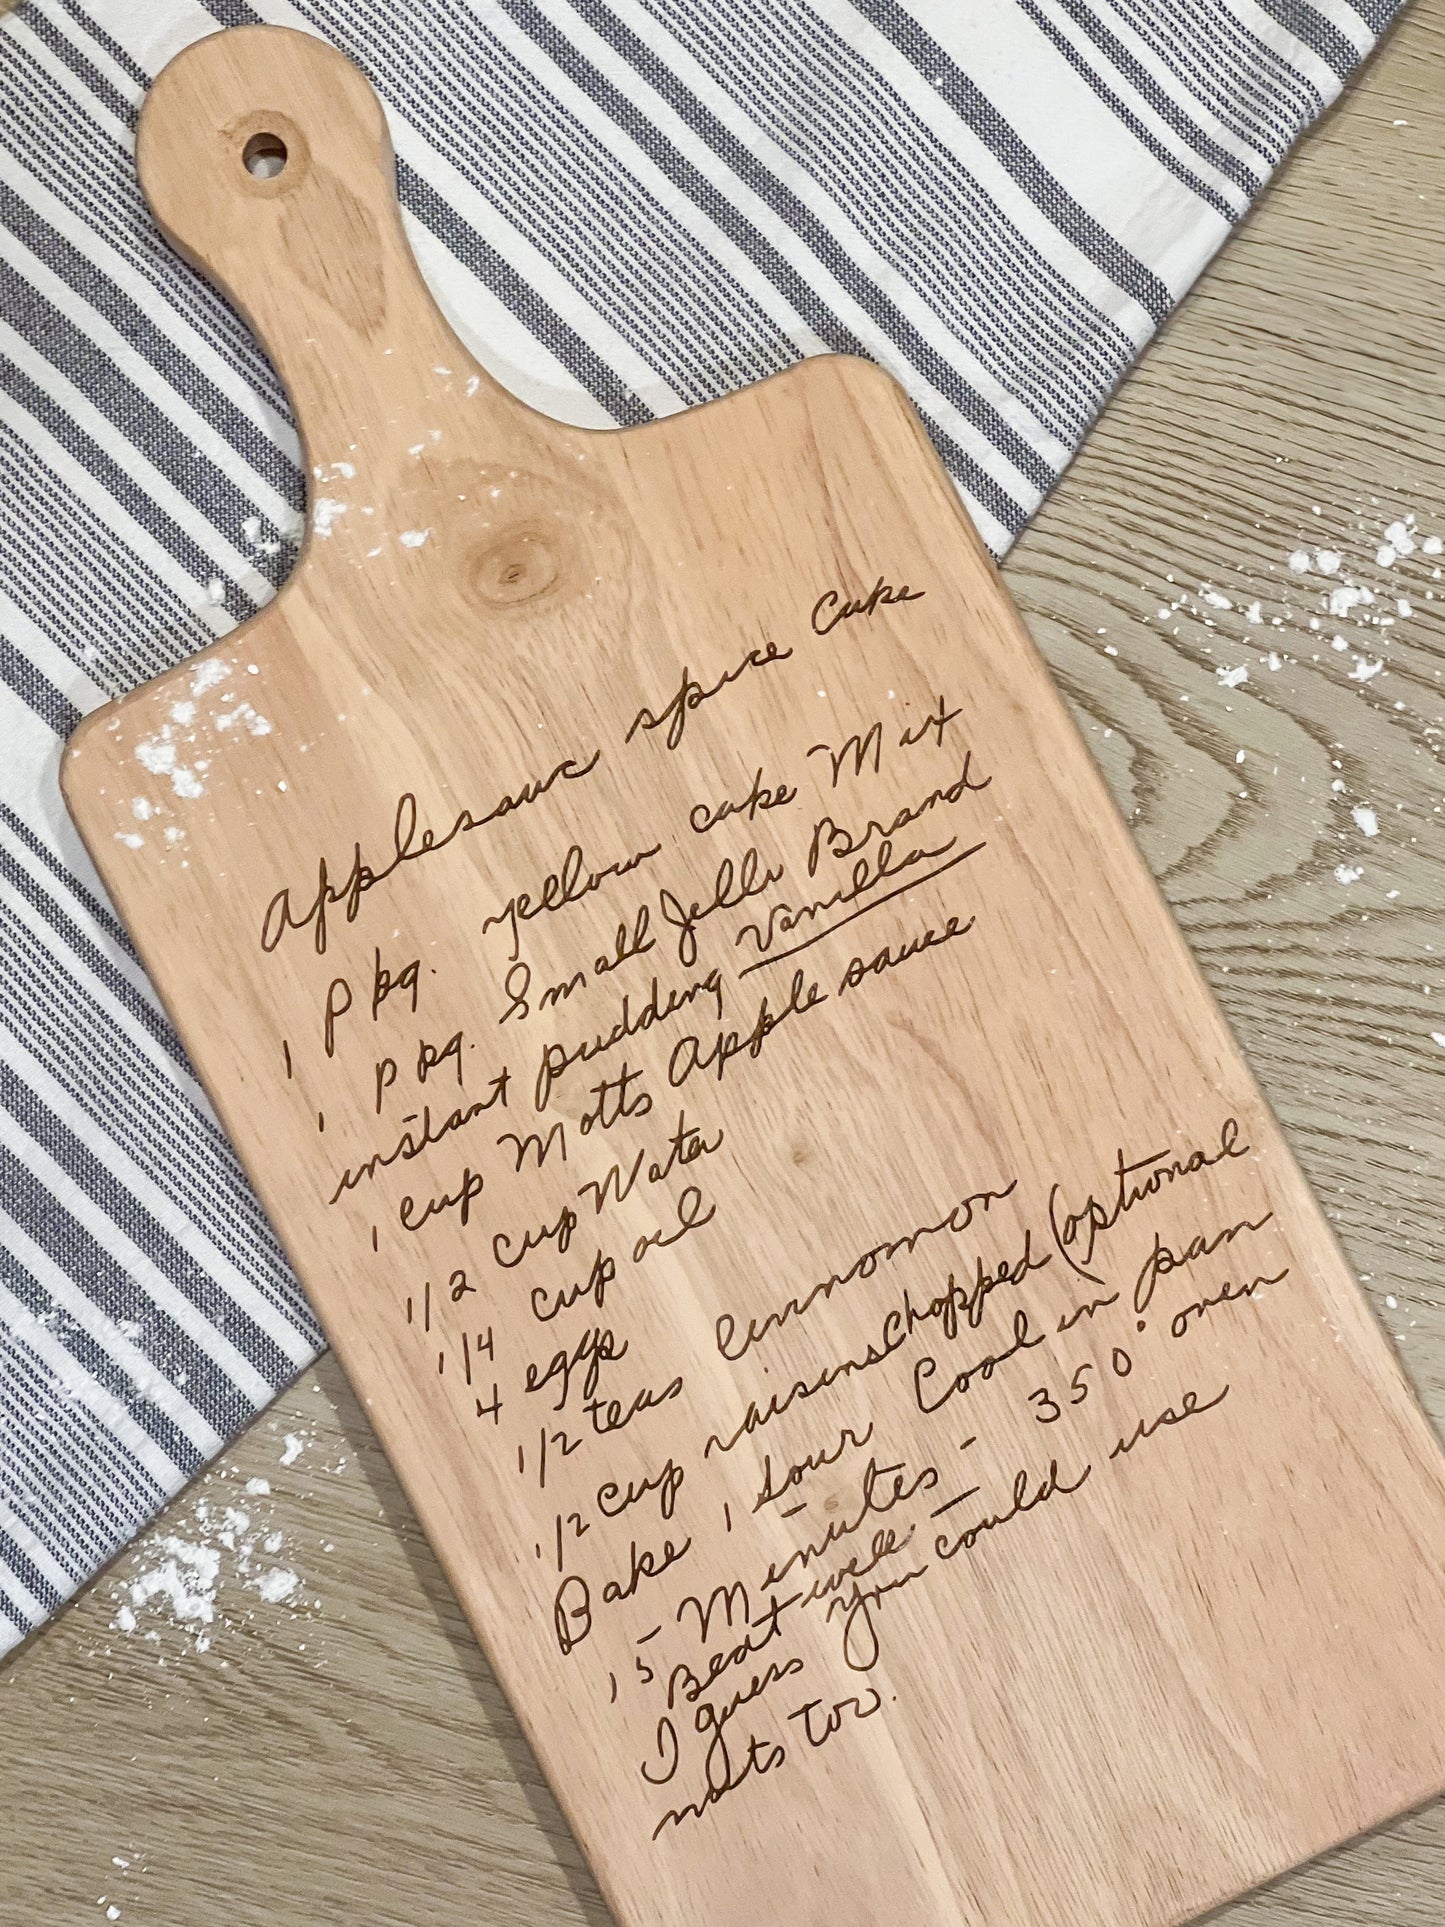 Applesauce spice Cake
1 pkg. yellow cake Mix
1 pkg. Small Jello Brand
instant pudding Vanilla
1 cup Motts Apple sauce
1/2 cup Water
1/4 cup oil
4 eggs
1/2 teas Cinnomon
1/2 cup raisins chopped (optional
Bake 1 hour Cool in pan
15 - Minutes - 350° oven
Beat well -
I guess you could use
nuts too.